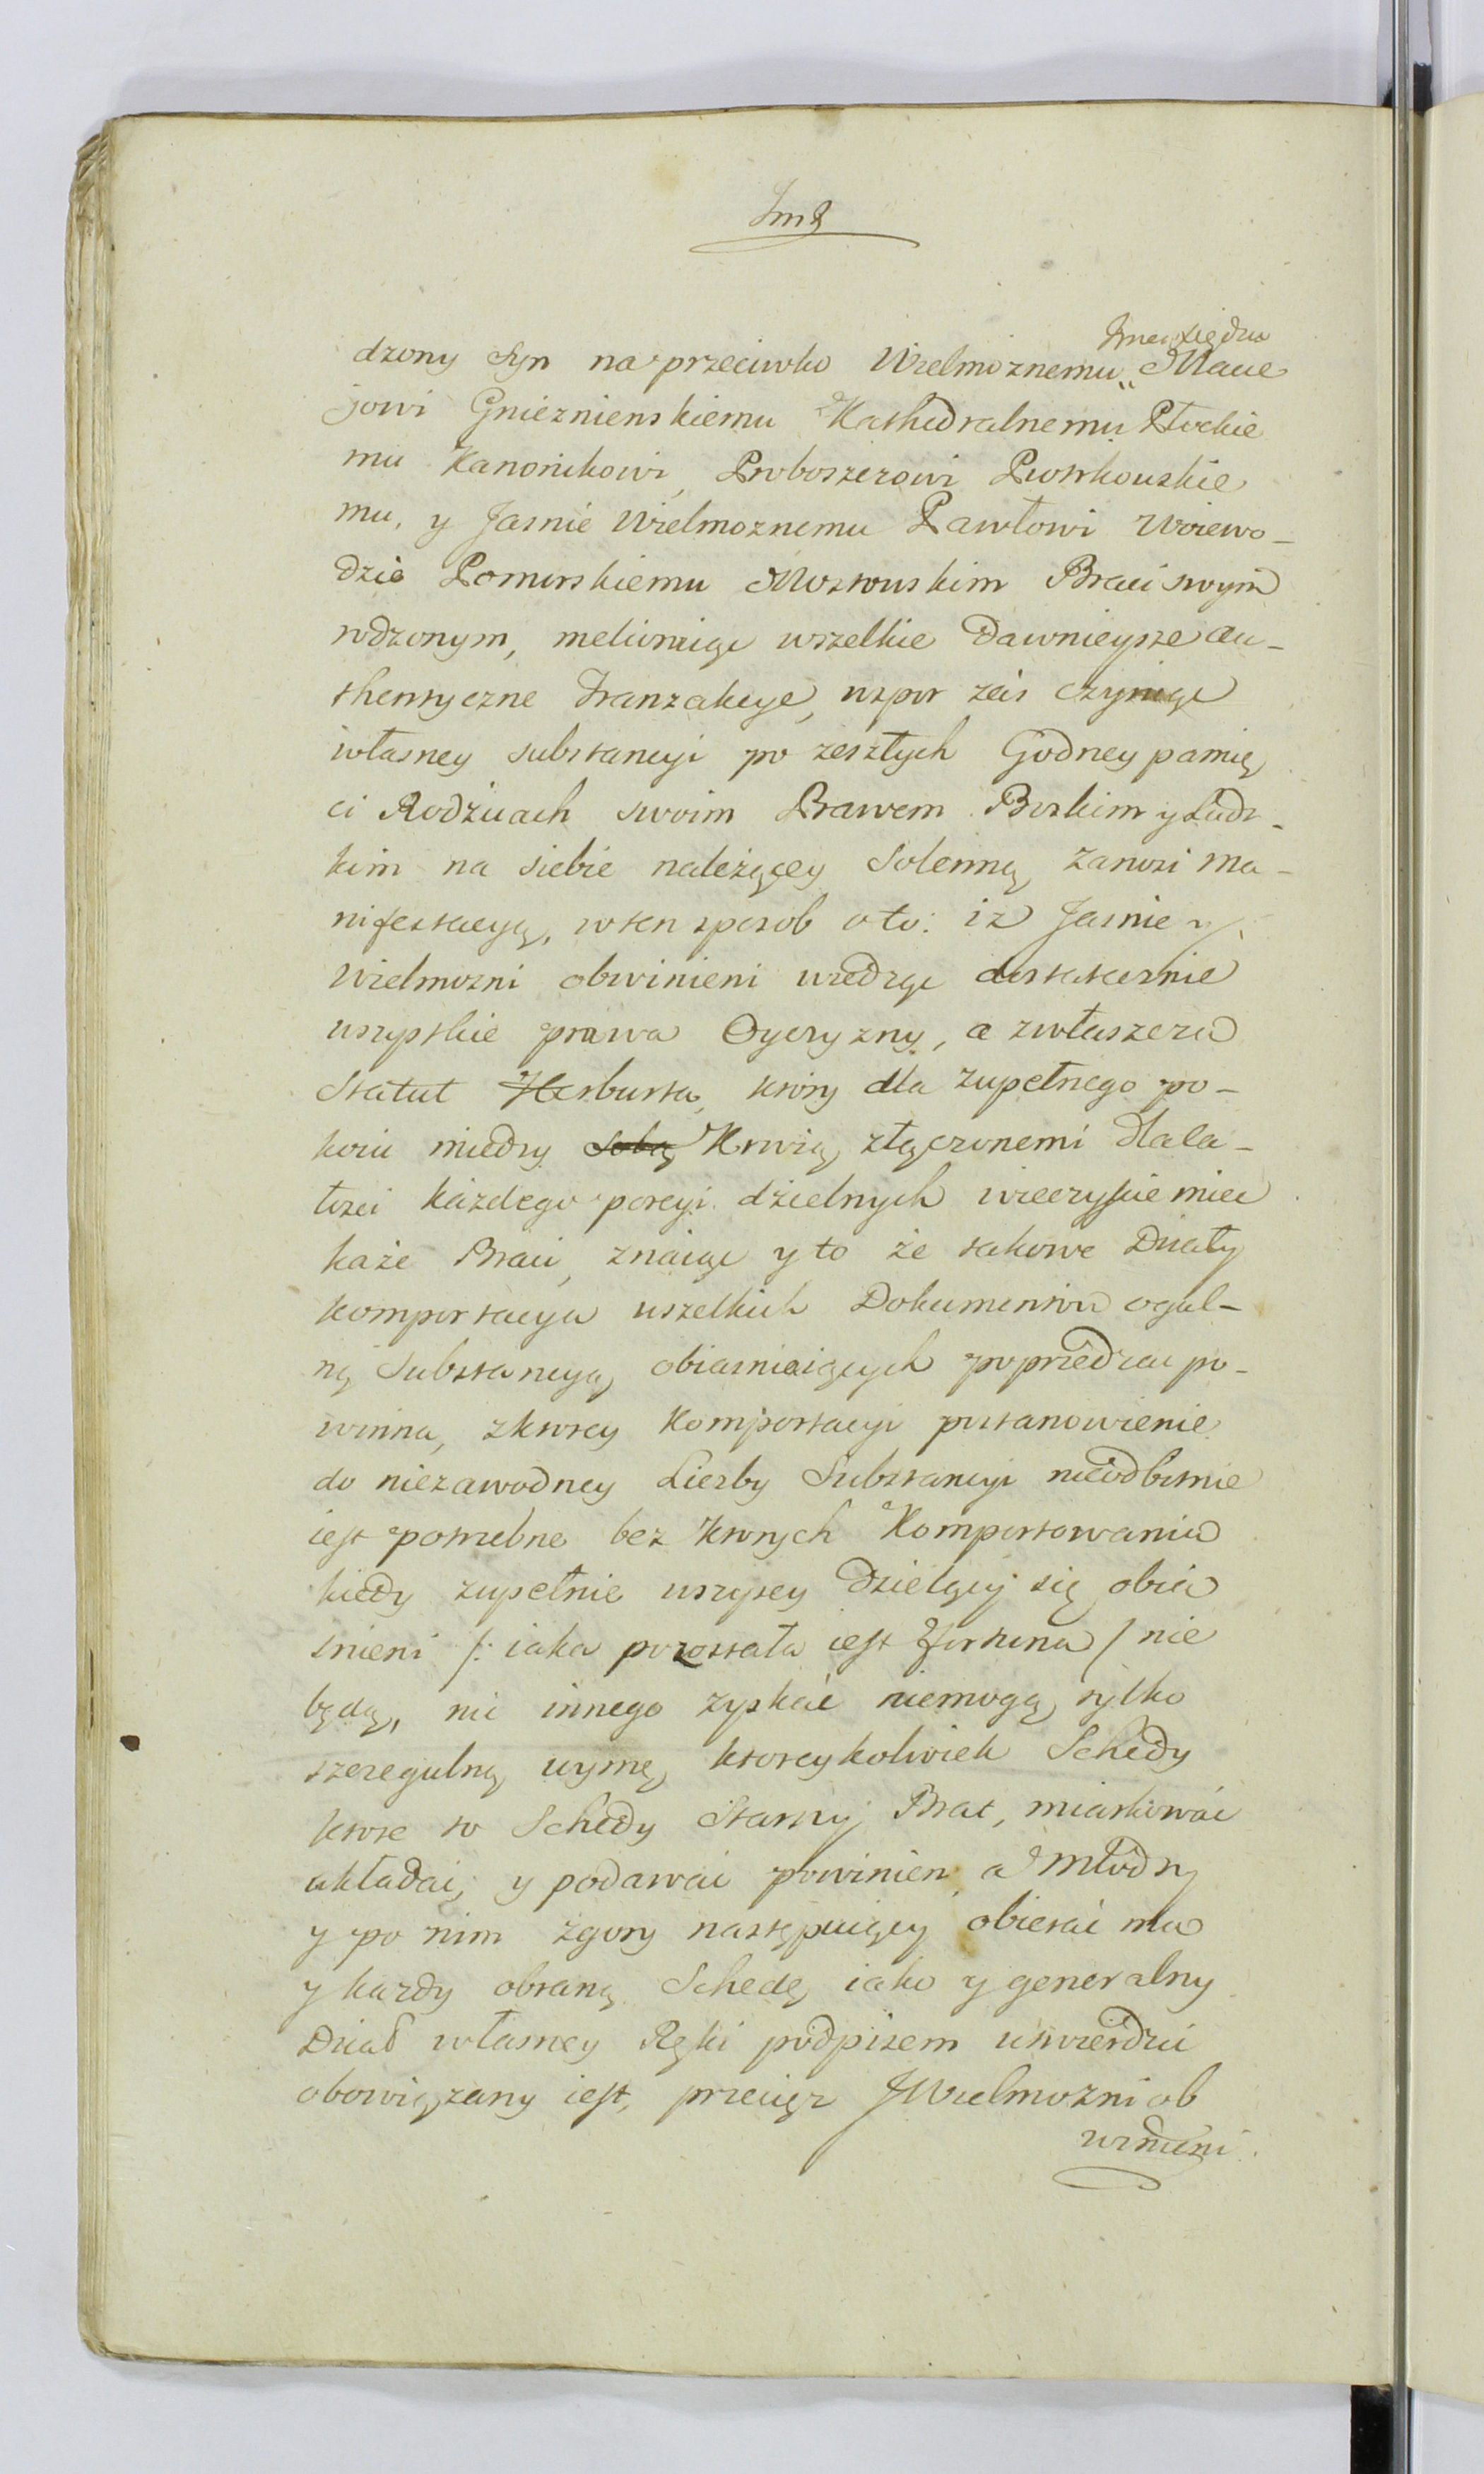 dzony Syn na przeciwko Wielmoznemu „ Jmci Xiędzu Macie
jowi Gniezninskiemu Kathedralnemu Płockie
mu Kanonikowi, Proboszczowi Piotrkowskie
mu, y Jasnie Wielmoznemu Pawłowi Woiewo-
dzie Pomorskiemu Mostowskim Braci swym
rodzonym, meliorując wszelkie dawnieysze au-
thentyczne Tranzakcye, wspor zas czyniąc
własney substancyi po zeszłych Godney pamię
ci Rodzicach swoim Prawem Boskim y Ludz-
kim na siebie należącey Solenną zanosi ma-
nifestacyą, wten sposob oto: iz Jasnie y
Wielmozni obwinieni wiedząc dostatecznie
wszystkie prawa Oyczyzny, a zwłaszcza
Statut Herburta, ktory dla zupełnego po-
koiu miedzy sobą Krwią złączonemi dla ca-
łosci każdego porcyi dzielnych wieczyscie miec
każe Braci, znaiąc y to że takowe Działy
komportacya wszelkich Dokumentow ogul-
ną Substancyą obiasniaiących poprzedzac po-
winna, zktorey Komportacyi postanowienie
do niezawodney Liczby Substancyi nieodbitnie
iest potrzebne bez ktorych Komportowania
kiedy zupełnie wszyscy dzielący się obia
snieni /: iaka pozostała iest Fortuna / nie
będą, nic innego zyskać niemogą, tylko
szczegulną uymę ktoreykolwiek Schedy
ktore to Schedy Starszy Brat, miarkować
układać, y podawać powinien, a Młodszy
y po nim zgory następuiący obierać ma
y kazdy obraną Schedę iako y generalny
Dział własney Ręki podpisem utwierdzic
obowiązany iest, przeciez JWielmozni ob
winieni